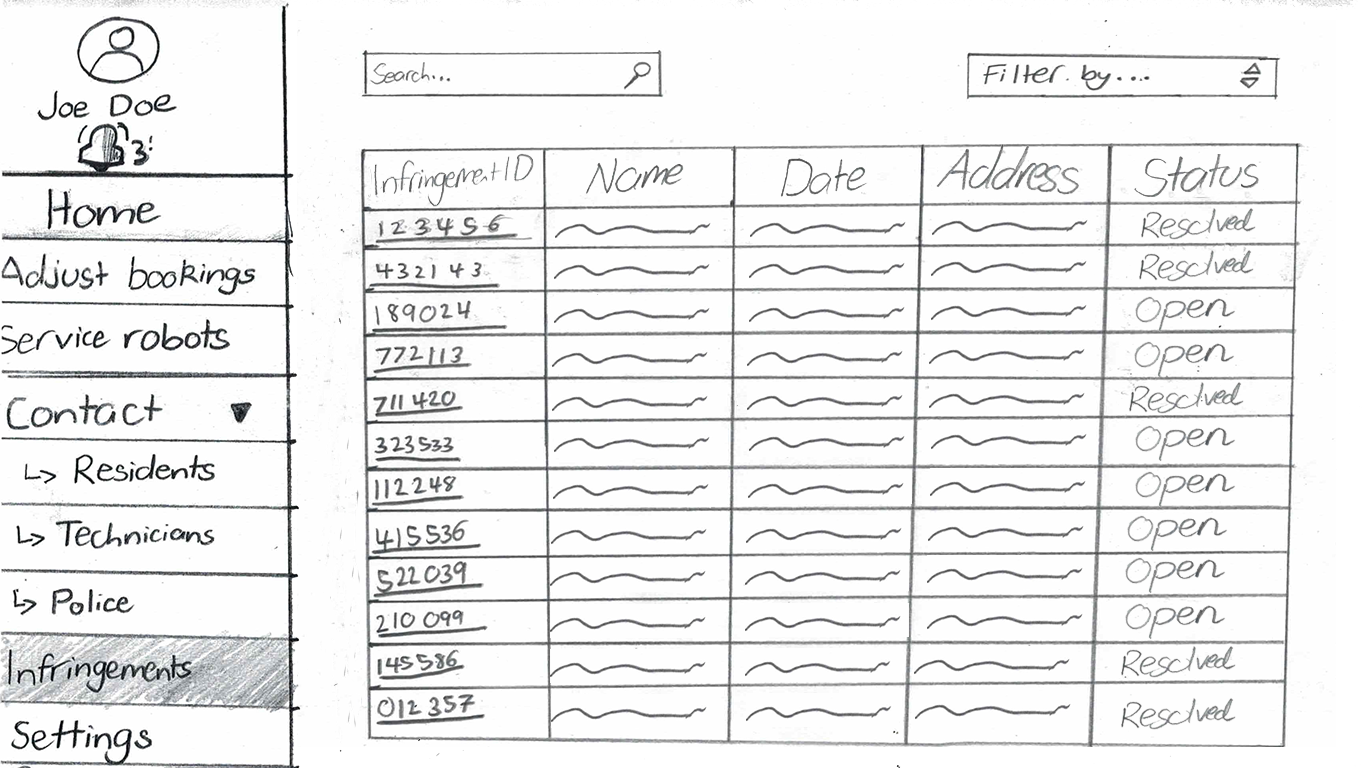 Joe Doe
3
Home
Adjust bookings
Service robots
Contact
Residents
Technicians
Police
Infringements
Settings
Search...
Filter by...
InfringementID Name Date Address Status
123456 Resolved
432143 Resolved
189024 Open
772113 Open
711420 Resolved
323533 Open
112248 Open
415536 Open
522039 Open
210099 Open
145586 Resolved
012357 Resolved